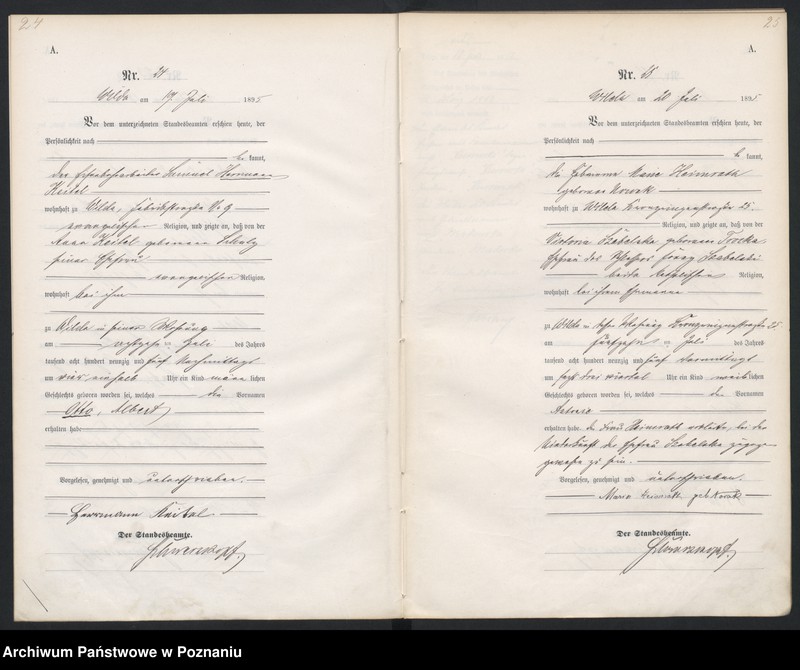 24
A.
Nr. 24
Wilda am 19. Juli 1895
Vor dem unterzeichneten Standesbeamten erschien heute, der
Persönlichkeit nach
be kannt,
der Herrmann
Keitel
wohnhaft zu Wilda, Fabrikstraße No 9
evangelischer Religion, und zeigte an, daß von der
Keitel geborenen Schulz
seiner Ehefrau
evangelischer Religion,
wohnhaft bei ihm
zu Wilda in seiner Wohnung
am ten Juli des Jahres
tausend acht hundert neunzig und fünf Nachmittags
um vier einhalb Uhr ein Kind männlichen
Geschlechts geboren worden sei, welches die Vornamen
Otto, Albert
erhalten habe
Vorgelesen, genehmigt und unterschrieben.
Herrmann Keitel
Der Standesbeamte.
25
A.
Nr. 25
Wilda am 20 Juli 1895
Vor dem unterzeichneten Standesbeamten erschien heute, der
Persönlichkeit nach
be kannt,
die Hebamme Heimrath
geborene Nowak
wohnhaft zu Wilda Kronprinzenstraße 25.
Religion, und zeigte an, daß von der
Victoria Szabelska geborenen
Ehefrau des Szabelski
beide katholischer Religion,
wohnhaft bei ihrem Ehemanne
zu Wilda in Wohnung Kronprinzenstraße 25
am fünfzehn ten Juli des Jahres
tausend acht hundert neunzig und fünf Vormittags
um drei viertel Uhr ein Kind weiblichen
Geschlechts geboren worden sei, welches den Vornamen
erhalten habe. die Frau Heimrath erklärte, bei der
Niederkunft der Ehefrau Szabelska zugegen
gewesen zu sein.
Vorgelesen, genehmigt und unterschrieben.
Maria Heimrath geb. Nowak
Der Standesbeamte.
Archiwum Państwowe w Poznaniu